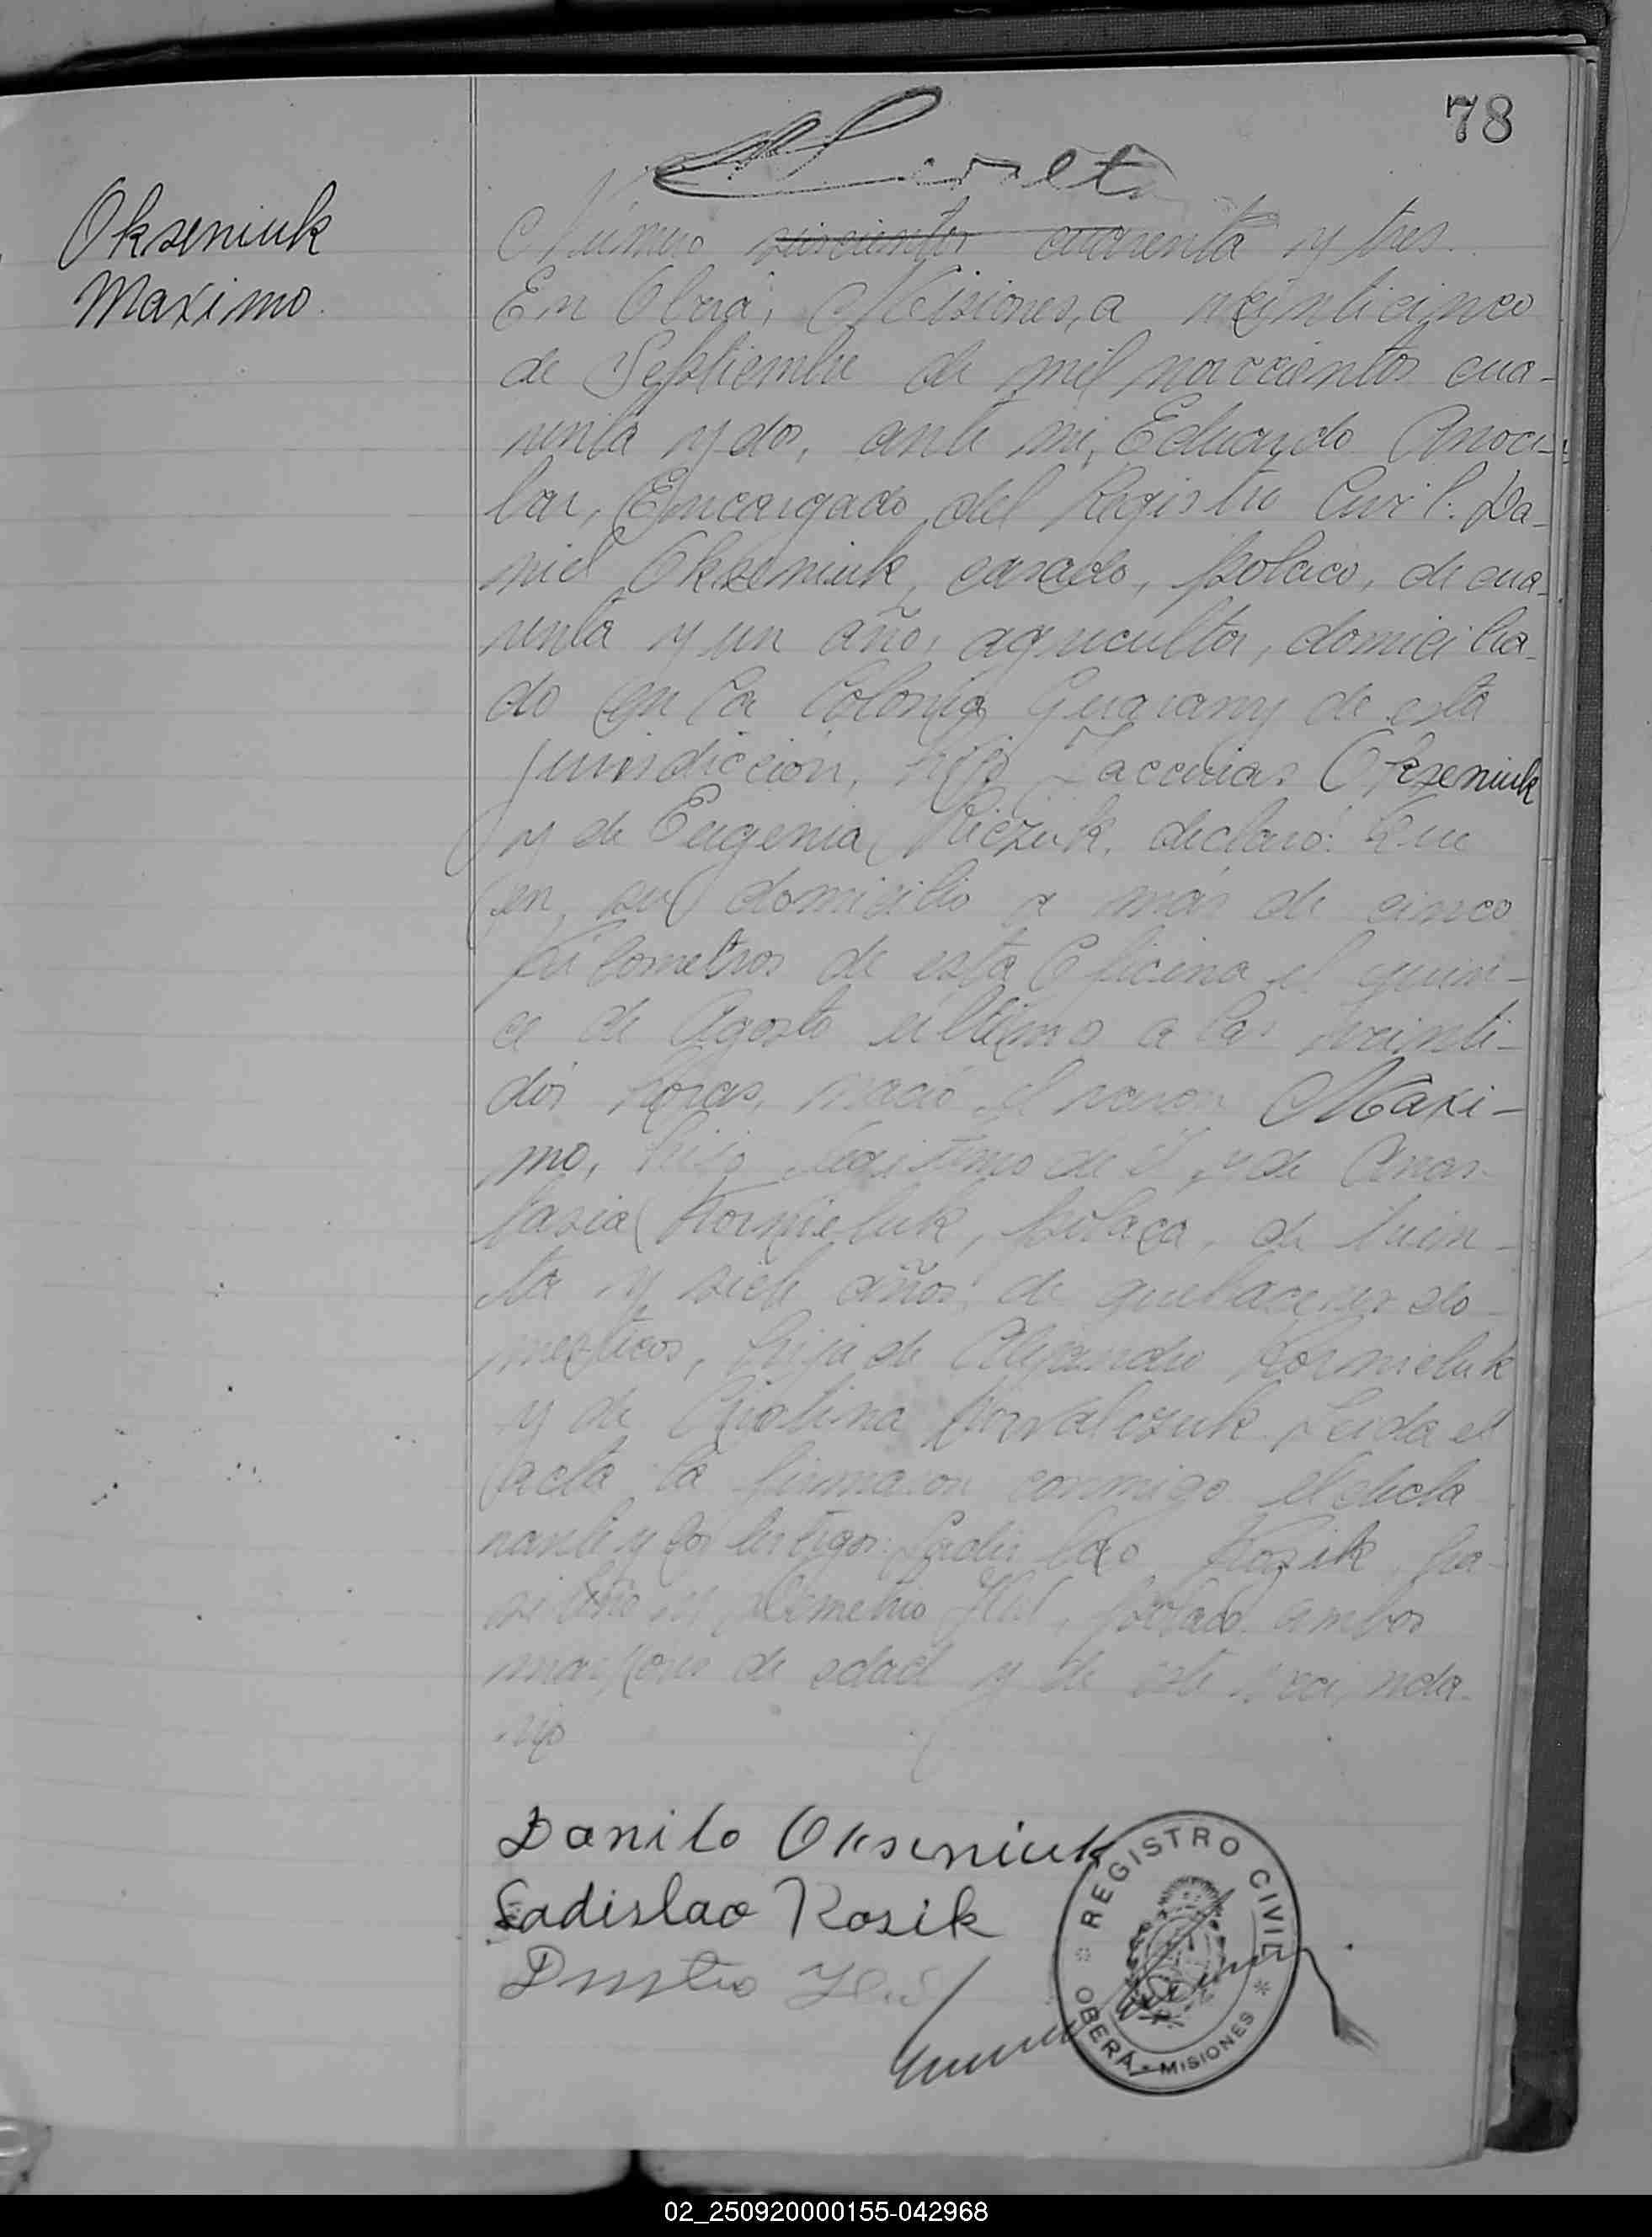 78
Okseniuk
Maximo.
Número seiscientos cuarenta y tres.
En Oberá, Misiones, a veinticinco
de Septiembre de mil novecientos cua-
renta y dos, ante mi, Eduardo
lar, Encargado del Registro Civil: Da-
niel Okseniuk, casado, polaco, de cua-
renta y un año, agricultor, domicilia-
do en la Colonia Guarany de esta
jurisdicción, hijo Zaccarias Okseniuk
y de Eugenia declaró: Que
en su domicilio a más de cinco
kilometros de esta Oficina el quin-
ce de Agosto último a las veinti-
dos horas, nació el varon Maxi-
mo, hijo legitimo de él y de Anas-
tasia Kornieluk, polaca, de trein-
ta y siete años, de quehaceres do-
mesticos, hija de Alejandro Kornieluk
y de Cristina Kowalczuk. Leida el
acta la firmaron conmigo el decla
rante y los testigos: Ladislao Kosik, bra-
silero y Demetrio polaco, ambos
mayores de edad y de este vecinda-
rio
Danilo Okseniuk
Ladislao Kosik
REGISTRO CIVIL
OBERÁ - MISIONES
02_250920000155-042968